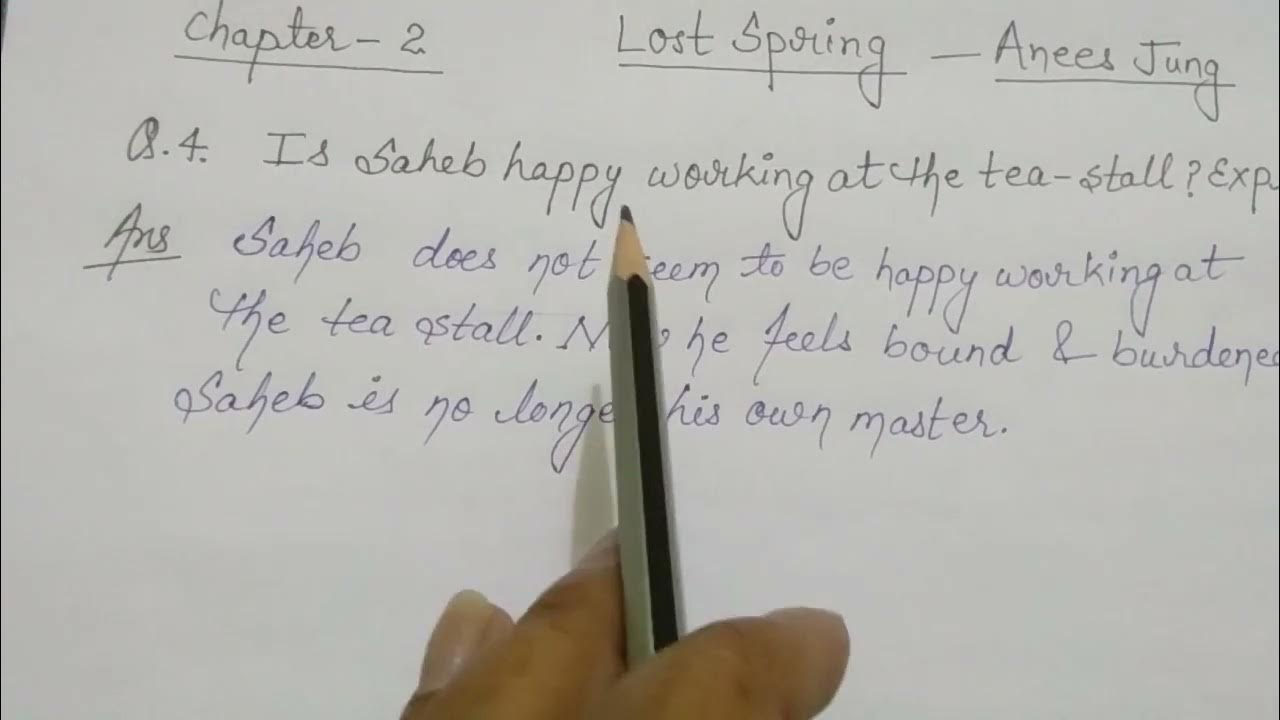 Chapter - 2 Lost Spring — Anees Jung
Q.4. Is Saheb happy working at the tea-stall? Exp
Ans Saheb does not seem to be happy working at
the tea stall. he feels bound & burdened
Saheb is no longer his own master.